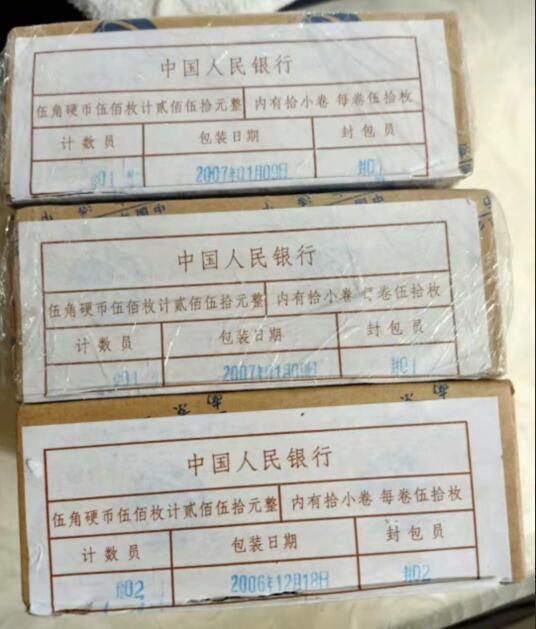 中国人民银行
伍角硬币伍佰枚计贰佰伍拾元整 内有拾小卷 每卷伍拾枚
计数员 包装日期 封包员
#01 2007年01月09日 #01
中国人民银行
伍角硬币伍佰枚计贰佰伍拾元整 内有拾小卷 卷伍拾枚
计数员 包装日期 封包员
#01 2007年01月09日 #01
中国人民银行
伍角硬币伍佰枚计贰佰伍拾元整 内有拾小卷 每卷伍拾枚
计数员 包装日期 封包员
#02 2006年12月18日 #02